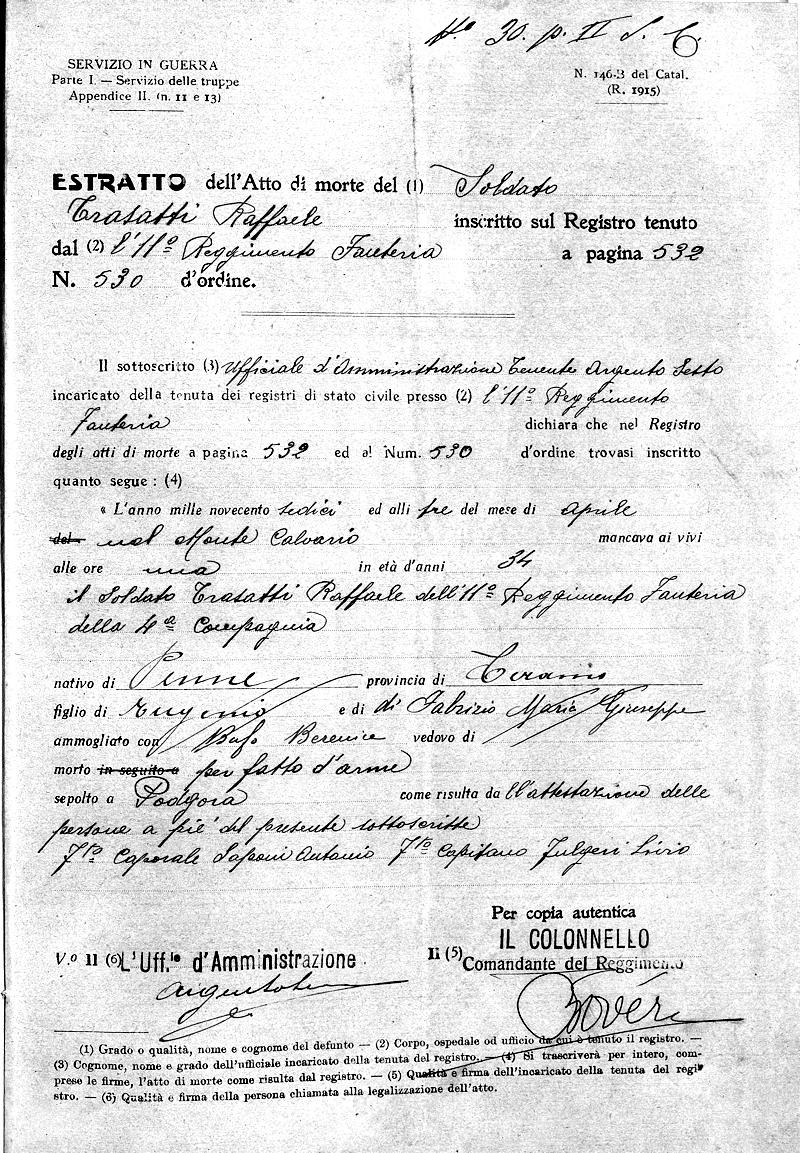 N° 30. p. II S. C.
SERVIZIO IN GUERRA
Parte I. — Servizio delle truppe
Appendice II. (n. 11 e 13)
N. 146-B del Catal.
(R. 1915)
ESTRATTO dell'Atto di morte del (1) Soldato
Trasatti Raffaele inscritto sul Registro tenuto
dal (2) l'11° Reggimento Fanteria a pagina 532
N. 530 d'ordine.
Il sottoscritto (3) Ufficiale d'Amministrazione Tenente Argento Sesto
incaricato della tenuta dei registri di stato civile presso (2) l'11° Reggimento
Fanteria dichiara che nel Registro
degli atti di morte a pagina 532 ed al Num. 530 d'ordine trovasi inscritto
quanto segue : (4)
« L'anno mille novecento sedici ed alli tre del mese di aprile
del nel Monte Calvario mancava ai vivi
alle ore una in età d'anni 34
il Soldato Trasatti Raffaele dell'11° Reggimento Fanteria
della 4a Compagnia
nativo di Penne provincia di Teramo
figlio di Eugenio e di di Fabrizio Maria Giuseppe
ammogliato con Berenice vedovo di
morto in seguito a per fatto d'arme
sepolto a Podgora come risulta da ll'attestazione delle
persone a piè del presente sottoscritte
Fto Caporale Saponi Antonio Fto Capitano Fulgeri Livio
Per copia autentica
IL COLONNELLO
V.o Il (6) L'Uff.le d'Amministrazione
Il (5) Comandante del Reggimento
(1) Grado o qualità, nome e cognome del defunto — (2) Corpo, ospedale od ufficio da cui è tenuto il registro. —
(3) Cognome, nome e grado dell'ufficiale incaricato della tenuta del registro. — (4) Si trascriverà per intero, com-
prese le firme, l'atto di morte come risulta dal registro. — (5) Qualità e firma dell'incaricato della tenuta del regi-
stro. — (6) Qualità e firma della persona chiamata alla legalizzazione dell'atto.